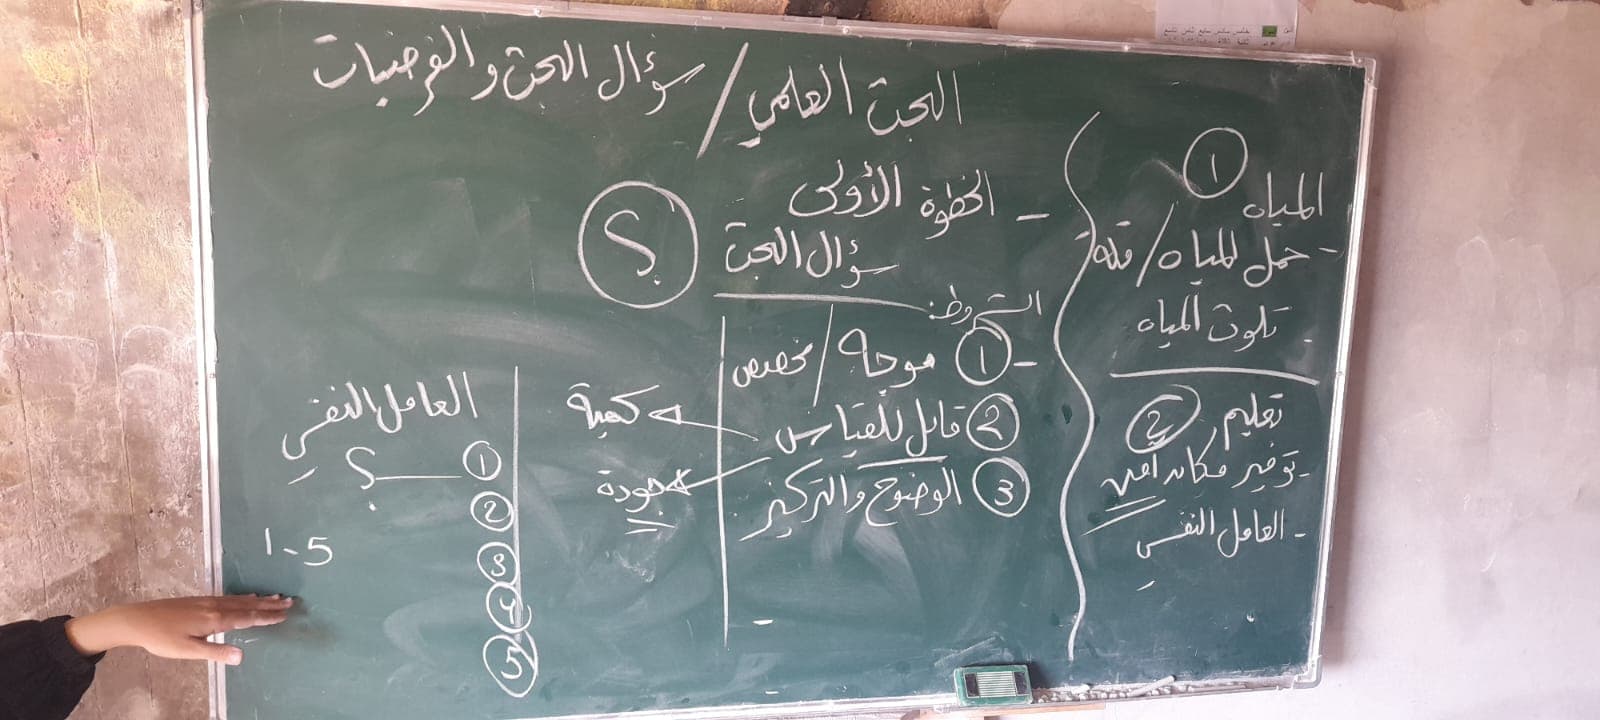 البحث العلمي / سؤال البحث والفرضيات
① المياه
- حمل المياه / قلة
تلوث المياه
② تعليم
- توفير مكان آمن
- العامل النفسي
- الخطوة الأولى
سؤال البحث
؟
الشروط:
- ① موجه / مخصص
② قابل للقياس
كمية
جودة
③ الوضوح والتركيز
العامل النفسي
① ؟
②
③
④
⑤
1-5